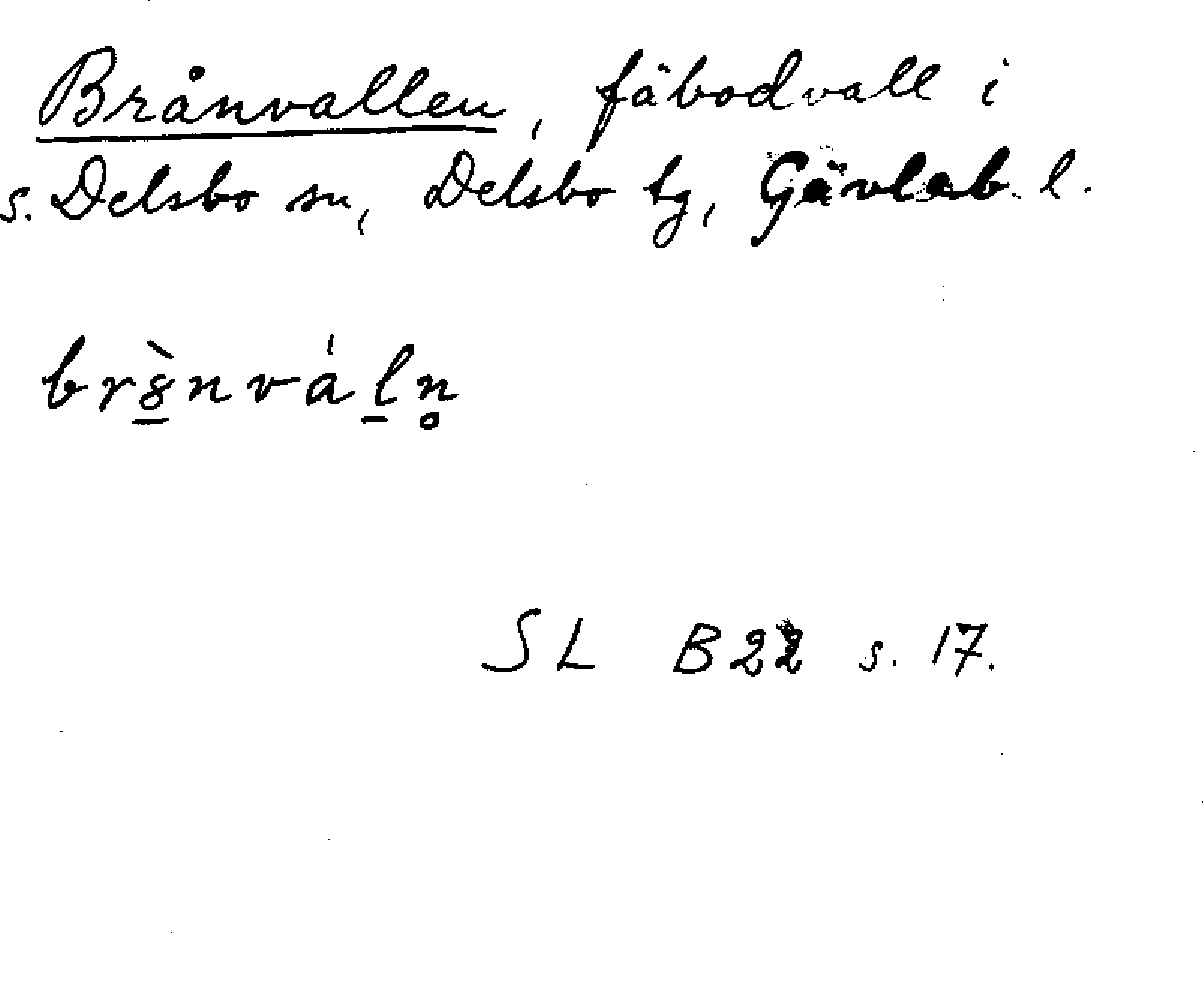 Brånvallen, fäbodvall i
s. Delsbo sn, Delsbo tg, Gävleb. l.
br8̲̀nvál̲n̥
SL B22 s. 17.